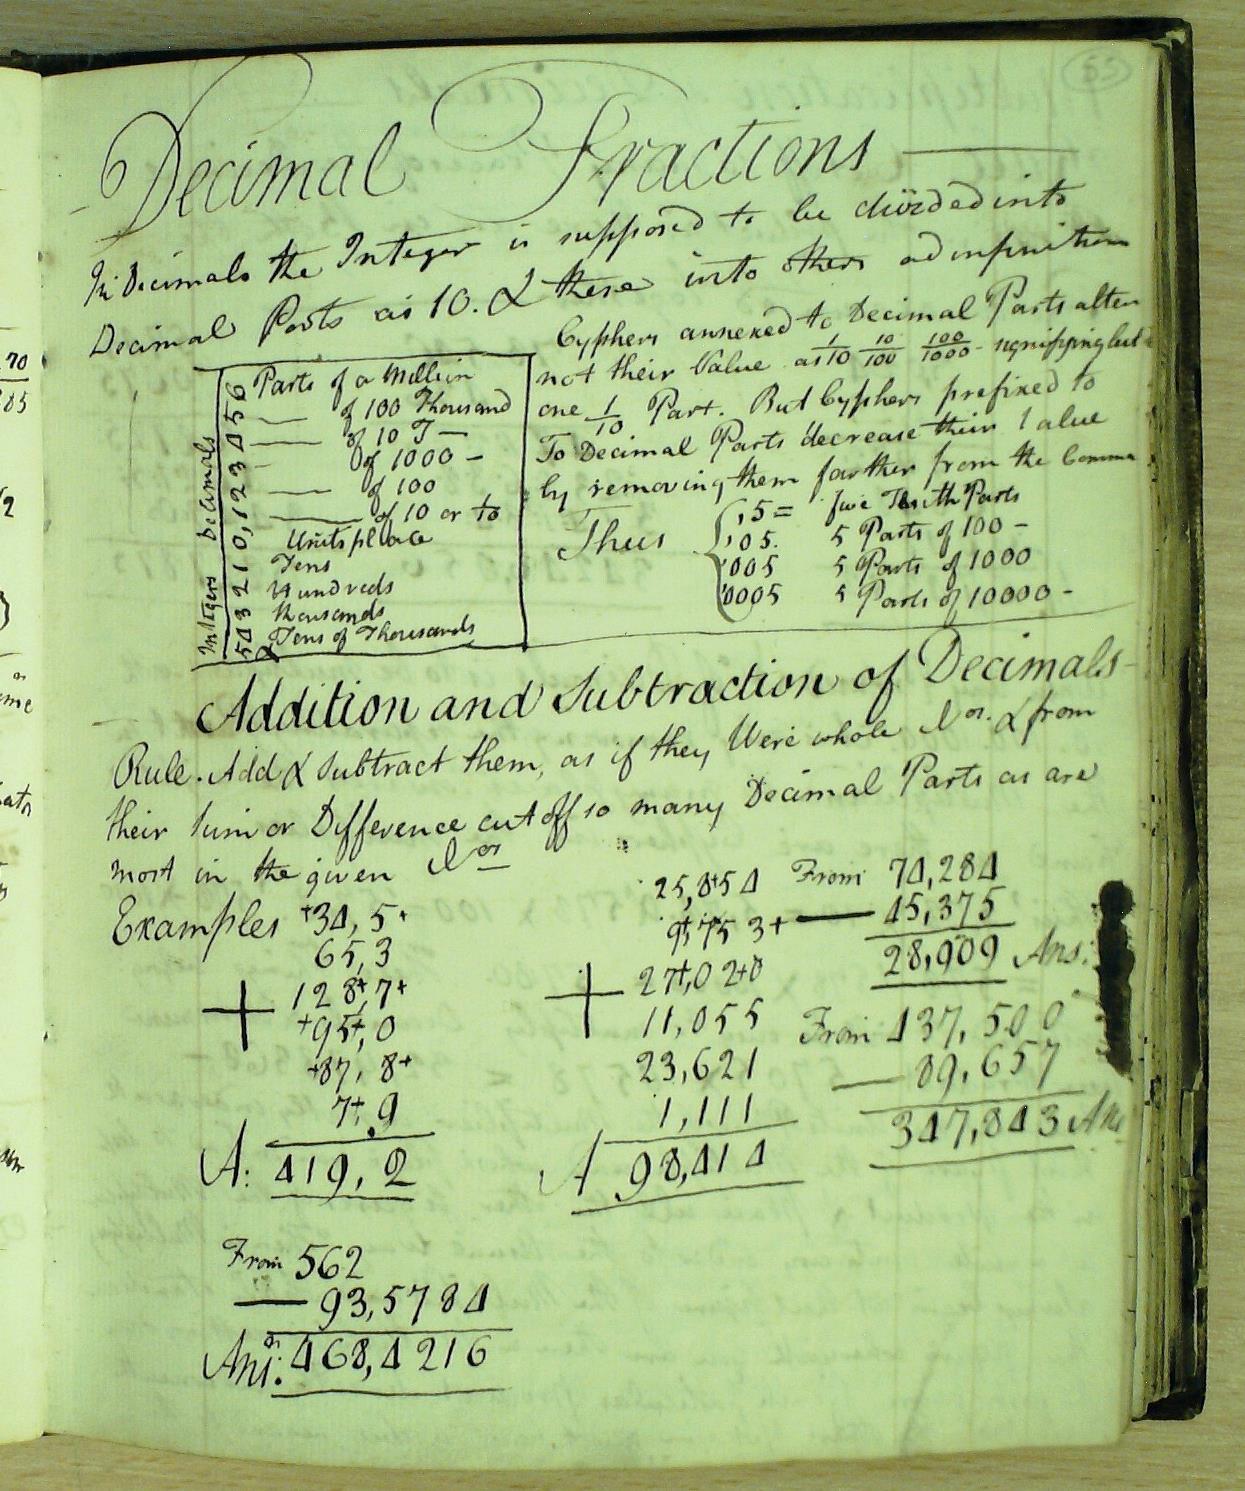 53
Decimal Fractions
In Decimals the Integer is supposed to be divided into
Decimal Parts as 10. & these into others ad infinitum
Cyphers annexed to Decimal Parts alter
not their Value as 1/10 10/100 100/1000 - signifying but
one 1/10 Part. But Cyphers prefixed to
To Decimal Parts decrease their Value
by removing them farther from the Comma
Thus ,5 = five Tenth Parts
,05. 5 Parts of 100 -
,005 5 Parts of 1000
,0005 5 Parts of 10000 -
Decimals
Integers
6 Parts of a Million
5 — of 100 Thousand
4 — of 10 T —
3 — of 1000 -
2 — of 100
1 — of 10 or to
0, Units place
1 Tens
2 Hundreds
3 Thousands
4 Tens of Thousands
5 &
Addition and Subtraction of Decimals
Rule. Add & Subtract them, as if they Were whole Nos. & from
their Sum or Difference cut off so many Decimal Parts as are
most in the given Nos
Examples 34,5
65,3
+ 128,7
95,0
87,8
7,9
A: 419,2
25,854
9,753
+ 27,020
11,055
23,621
1,111
A 98,414
From 74,284
— 45,375
28,909 Ans:
From 437,500
— 89,657
347,843 Ans
From 562
— 93,5784
Ans: 468,4216